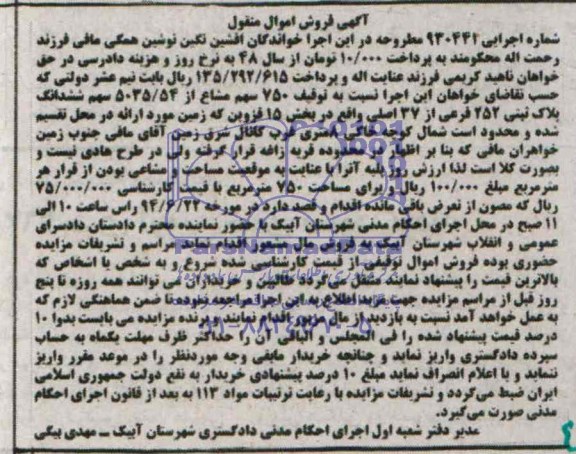 آگهی فروش اموال منقول
شماره اجرایی ۹۳۰۴۴۲ مطروحه در این اجرا خواندگان افشین نگین نوشین همگی مافی فرزند
رحمت اله محکومند به پرداخت ۱۰/۰۰۰ تومان از سال ۴۸ به نرخ روز و هزینه دادرسی در حق
خواهان ناهید کریمی فرزند عنایت اله و پرداخت ۱۳۵/۲۹۲/۶۱۵ ریال بابت نیم عشر دولتی که
حسب تقاضای خواهان این اجرا نسبت به توقیف ۷۵۰ سهم مشاع از ۵۰۳۵/۵۴ سهم ششدانگ
پلاک ثبتی ۲۵۲ فرعی از ۳۷ اصلی واقع در بخش ۱۵ قزوین که زمین مورد ارائه در محل تقسیم
شده و محدود است شمال کوچه خاکی متری غرب کانال شرق زمین آقای مافی جنوب زمین
خواهران مافی که بنا بر اظهار در محدوده قریه زاغه قرار گرفته ولی در طرح هادی نیست و
بصورت کلا است لذا ارزش روز پلیه آنرا با عنایت به موقعیت مساحت و مشاعی بودن از قرار هر
مترمربع مبلغ ۱۰۰/۰۰۰ ریال و برای مساحت ۷۵۰ مترمربع با قیمت کارشناسی ۷۵/۰۰۰/۰۰۰
ریال که مصون از تعرض باقی مانده اقدام و قصد دارد در مورخه ۹۴/۶/۲۲ راس ساعت ۱۰ الی
۱۱ صبح در محل اجرای احکام مدنی شهرستان آبیک با حضور نماینده محترم دادستان دادسرای
عمومی و انقلاب شهرستان آبیک به فروش مال مشعور اقدام نماید مراسم و تشریفات مزایده
حضوری بوده فروش اموال توقیفی از قیمت کارشناسی شده شروع و به شخص یا اشخاص که
بالاترین قیمت را پیشنهاد نمایند منتقل می گردد طالبین و خریداران می توانند همه روزه تا پنج
روز قبل از مراسم مزایده جهت مزید اطلاع به این اجرا مراجعه نموده تا ضمن هماهنگی لازم که
به عمل خواهد آمد نسبت به بازدید از مال مزبور اقدام نمایند برنده مزایده می بایست بدوا ۱۰
درصد قیمت پیشنهاد شده را فی المجلس و الباقی آن را حداکثر ظرف مهلت یکماه به حساب
سپرده دادگستری واریز نماید و چنانچه خریدار مابقی وجه موردنظر را در موعد مقرر واریز
ننماید و یا اعلام انصراف نماید مبلغ ۱۰ درصد پیشنهادی خریدار به نفع دولت جمهوری اسلامی
ایران ضبط می گردد و تشریفات مزایده با رعایت ترتیبات مواد ۱۱۳ به بعد از قانون اجرای احکام
مدنی صورت می گیرد.
مدیر دفتر شعبه اول اجرای احکام مدنی دادگستری شهرستان آبیک ــ مهدی بیگی